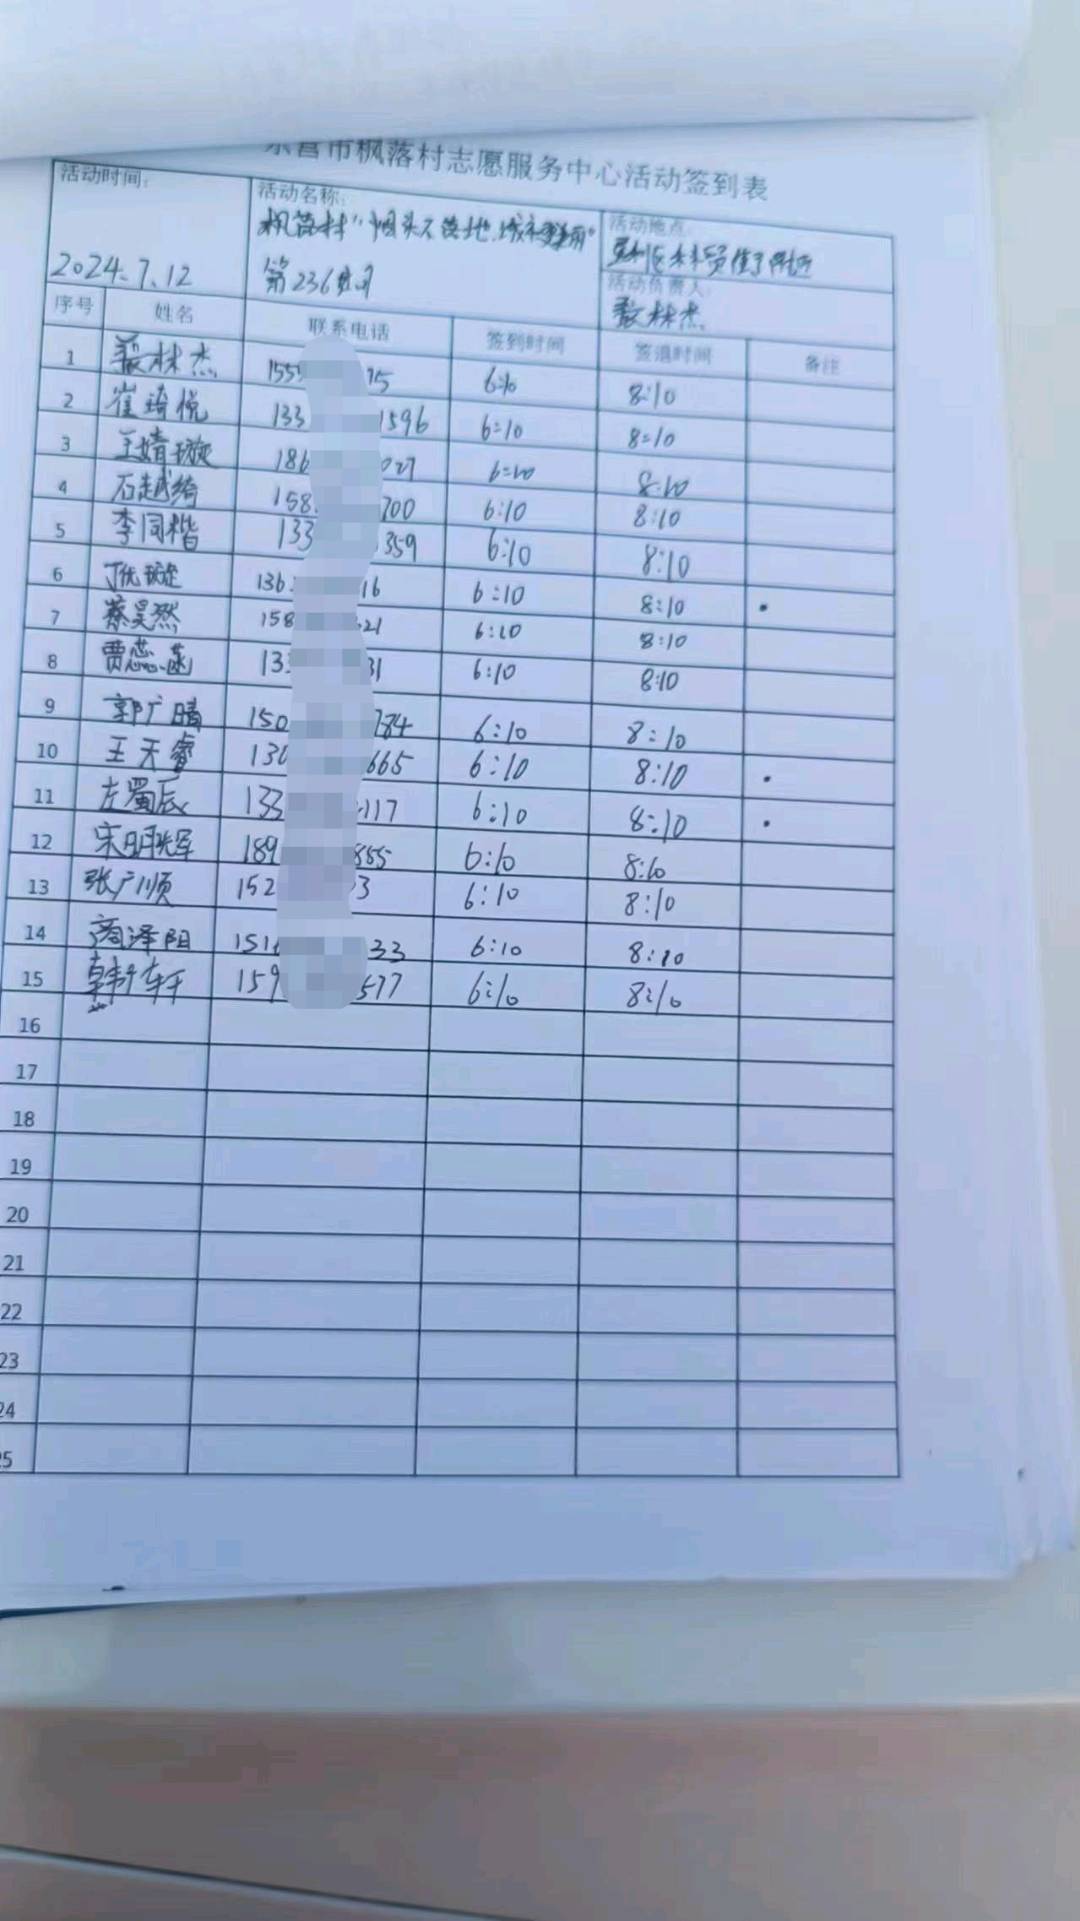 东营市枫落村志愿服务中心活动签到表
活动时间: 2024.7.12
活动名称: 枫落村“烟头不落地,城市更美丽”
第236次
活动地点:
活动负责人: 林杰
序号 姓名 联系电话 签到时间 签退时间 备注
1 林杰 155 75 6:10 8:10
2 崔琦悦 133 1596 6:10 8:10
3 王婧璇 186 027 6:10 8:10
4 石越绮 158 700 6:10 8:10
5 李同楷 133 359 6:10 8:10
6 璇 136 16 6:10 8:10
7 蔡昊然 158 21 6:10 8:10
8 贾蕊菡 133 31 6:10 8:10
9 郭广晴 150 784 6:10 8:10
10 王天睿 130 665 6:10 8:10
11 左蜀辰 133 117 6:10 8:10
12 宋明辉 189 855 6:10 8:10
13 张广顺 152 3 6:10 8:10
14 商泽阳 151 33 6:10 8:10
15 韩轩 159 577 6:10 8:10
16
17
18
19
20
21
22
23
24
25